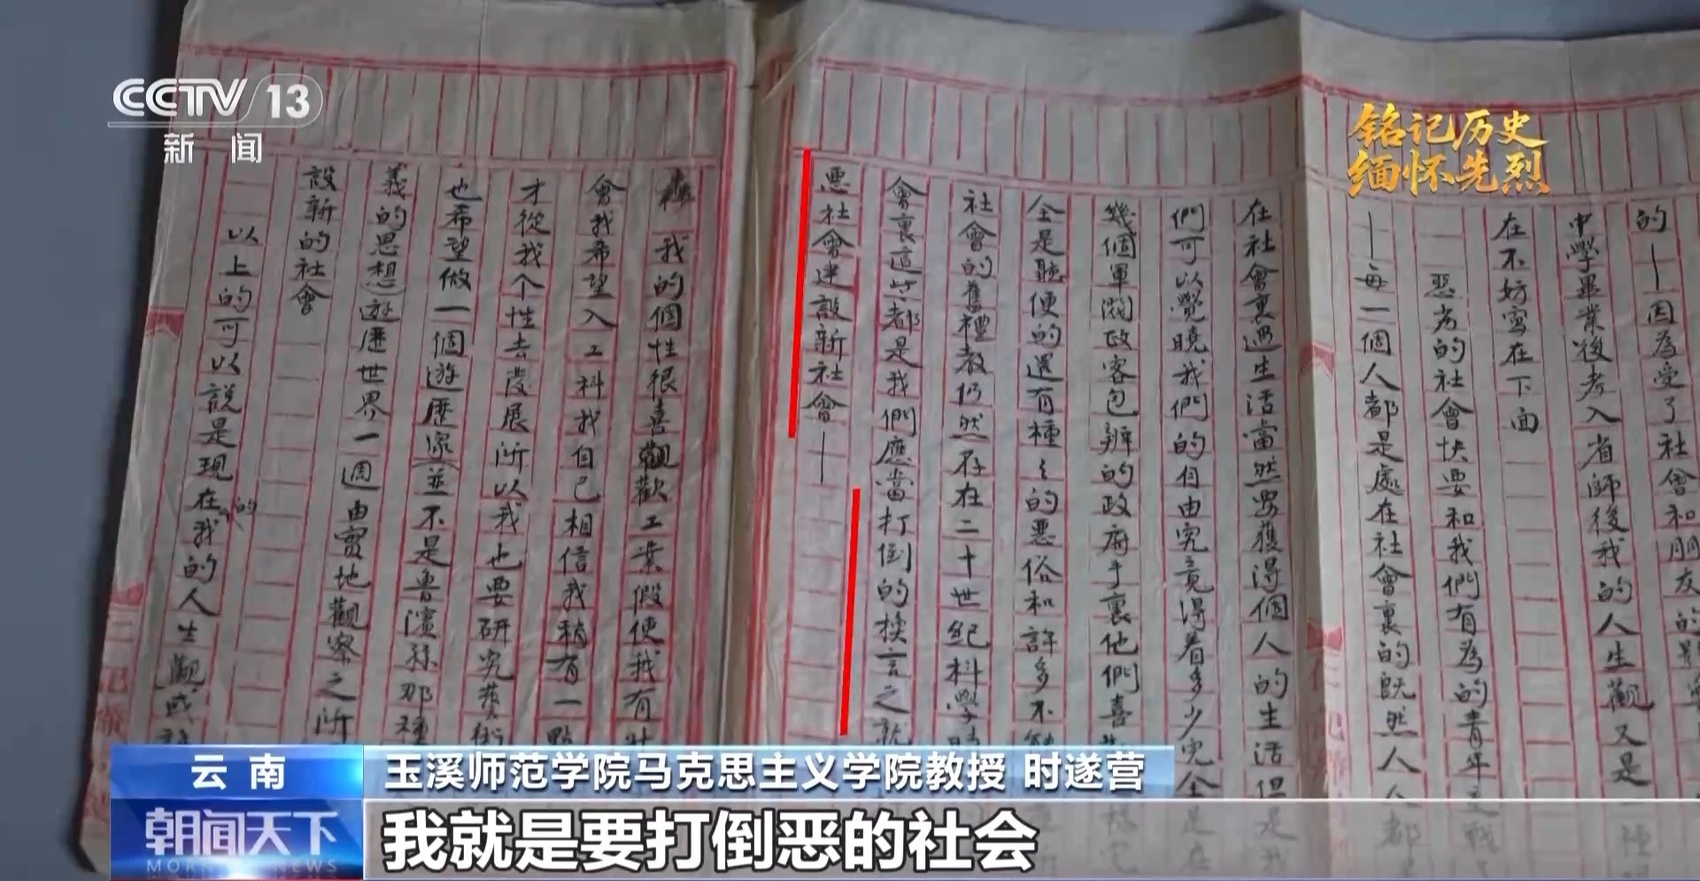 CCTV 13
新闻
铭记历史
缅怀先烈
的—因為受了社會和朋友的
中學畢業後考入省師後我的人生觀又是一種
在不妨寫在下面
惡劣的社會快要和我們有為的青年
—每一個人都是處在社會裏的既然人人都
在社會裏過生活當然要獲得個人的生活但是我
們可以覺曉我們的自由究竟得着多少完全是在
幾個軍閥政客包辦的政府手裏他們喜
全是聽便的還有種々的惡俗和許多不
社會的舊禮教仍然存在二十世紀科學
會裏這些都是我們應當打倒的換言之就
惡社會建設新社會—
我的個性很喜觀歡工業假使我有
會我希望入工科我自己相信我稍有一點
才從我个性去發展所以我也要研究藝術
也希望做一個遊歷家(並不是魯濱孫那種
義的思想)遊歷世界一週由實地觀察之所
設新的社會
以上的可以說是現在我的人生觀或
的
云南
玉溪师范学院马克思主义学院教授 时遂营
朝闻天下
MORNING NEWS
我就是要打倒恶的社会